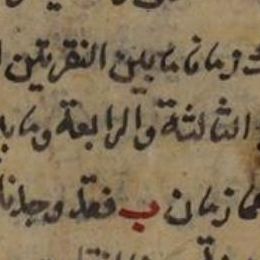 زمان ما بين النقرتين
الثالثة والرابعة وما بـ
ما زمان ب فقد وجدنا